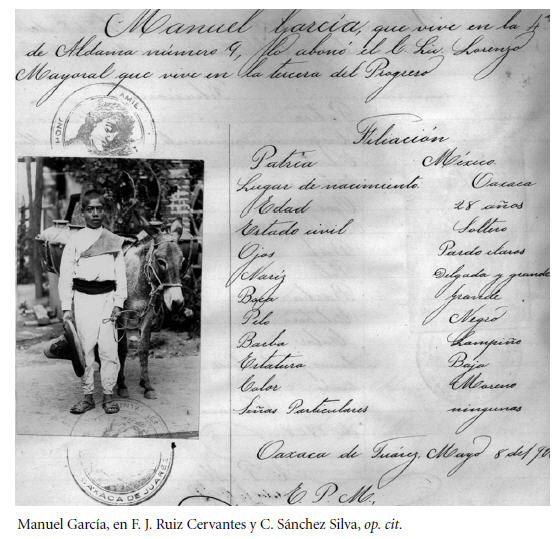 Manuel García, que vive en la 4ª
de Aldama número 9, lo abonó el C. Lic. Lorenzo
Mayoral que vive en la tercera del Progreso
MONT AMIE
Filiación
Patria México.
Lugar de nacimiento. Oaxaca
Edad 28 años
Estado civil Soltero
Ojos Pardo claros
Naríz Delgada y grande
Boca Grande
Pelo Negro
Barba Lampiño
Estatura Baja
Color Moreno
Señas Particulares ningunas
Oaxaca de Juárez, Mayo 8 del 90
E. P. M.
OAXACA DE JUAREZ
Manuel García, en F. J. Ruiz Cervantes y C. Sánchez Silva, op. cit.